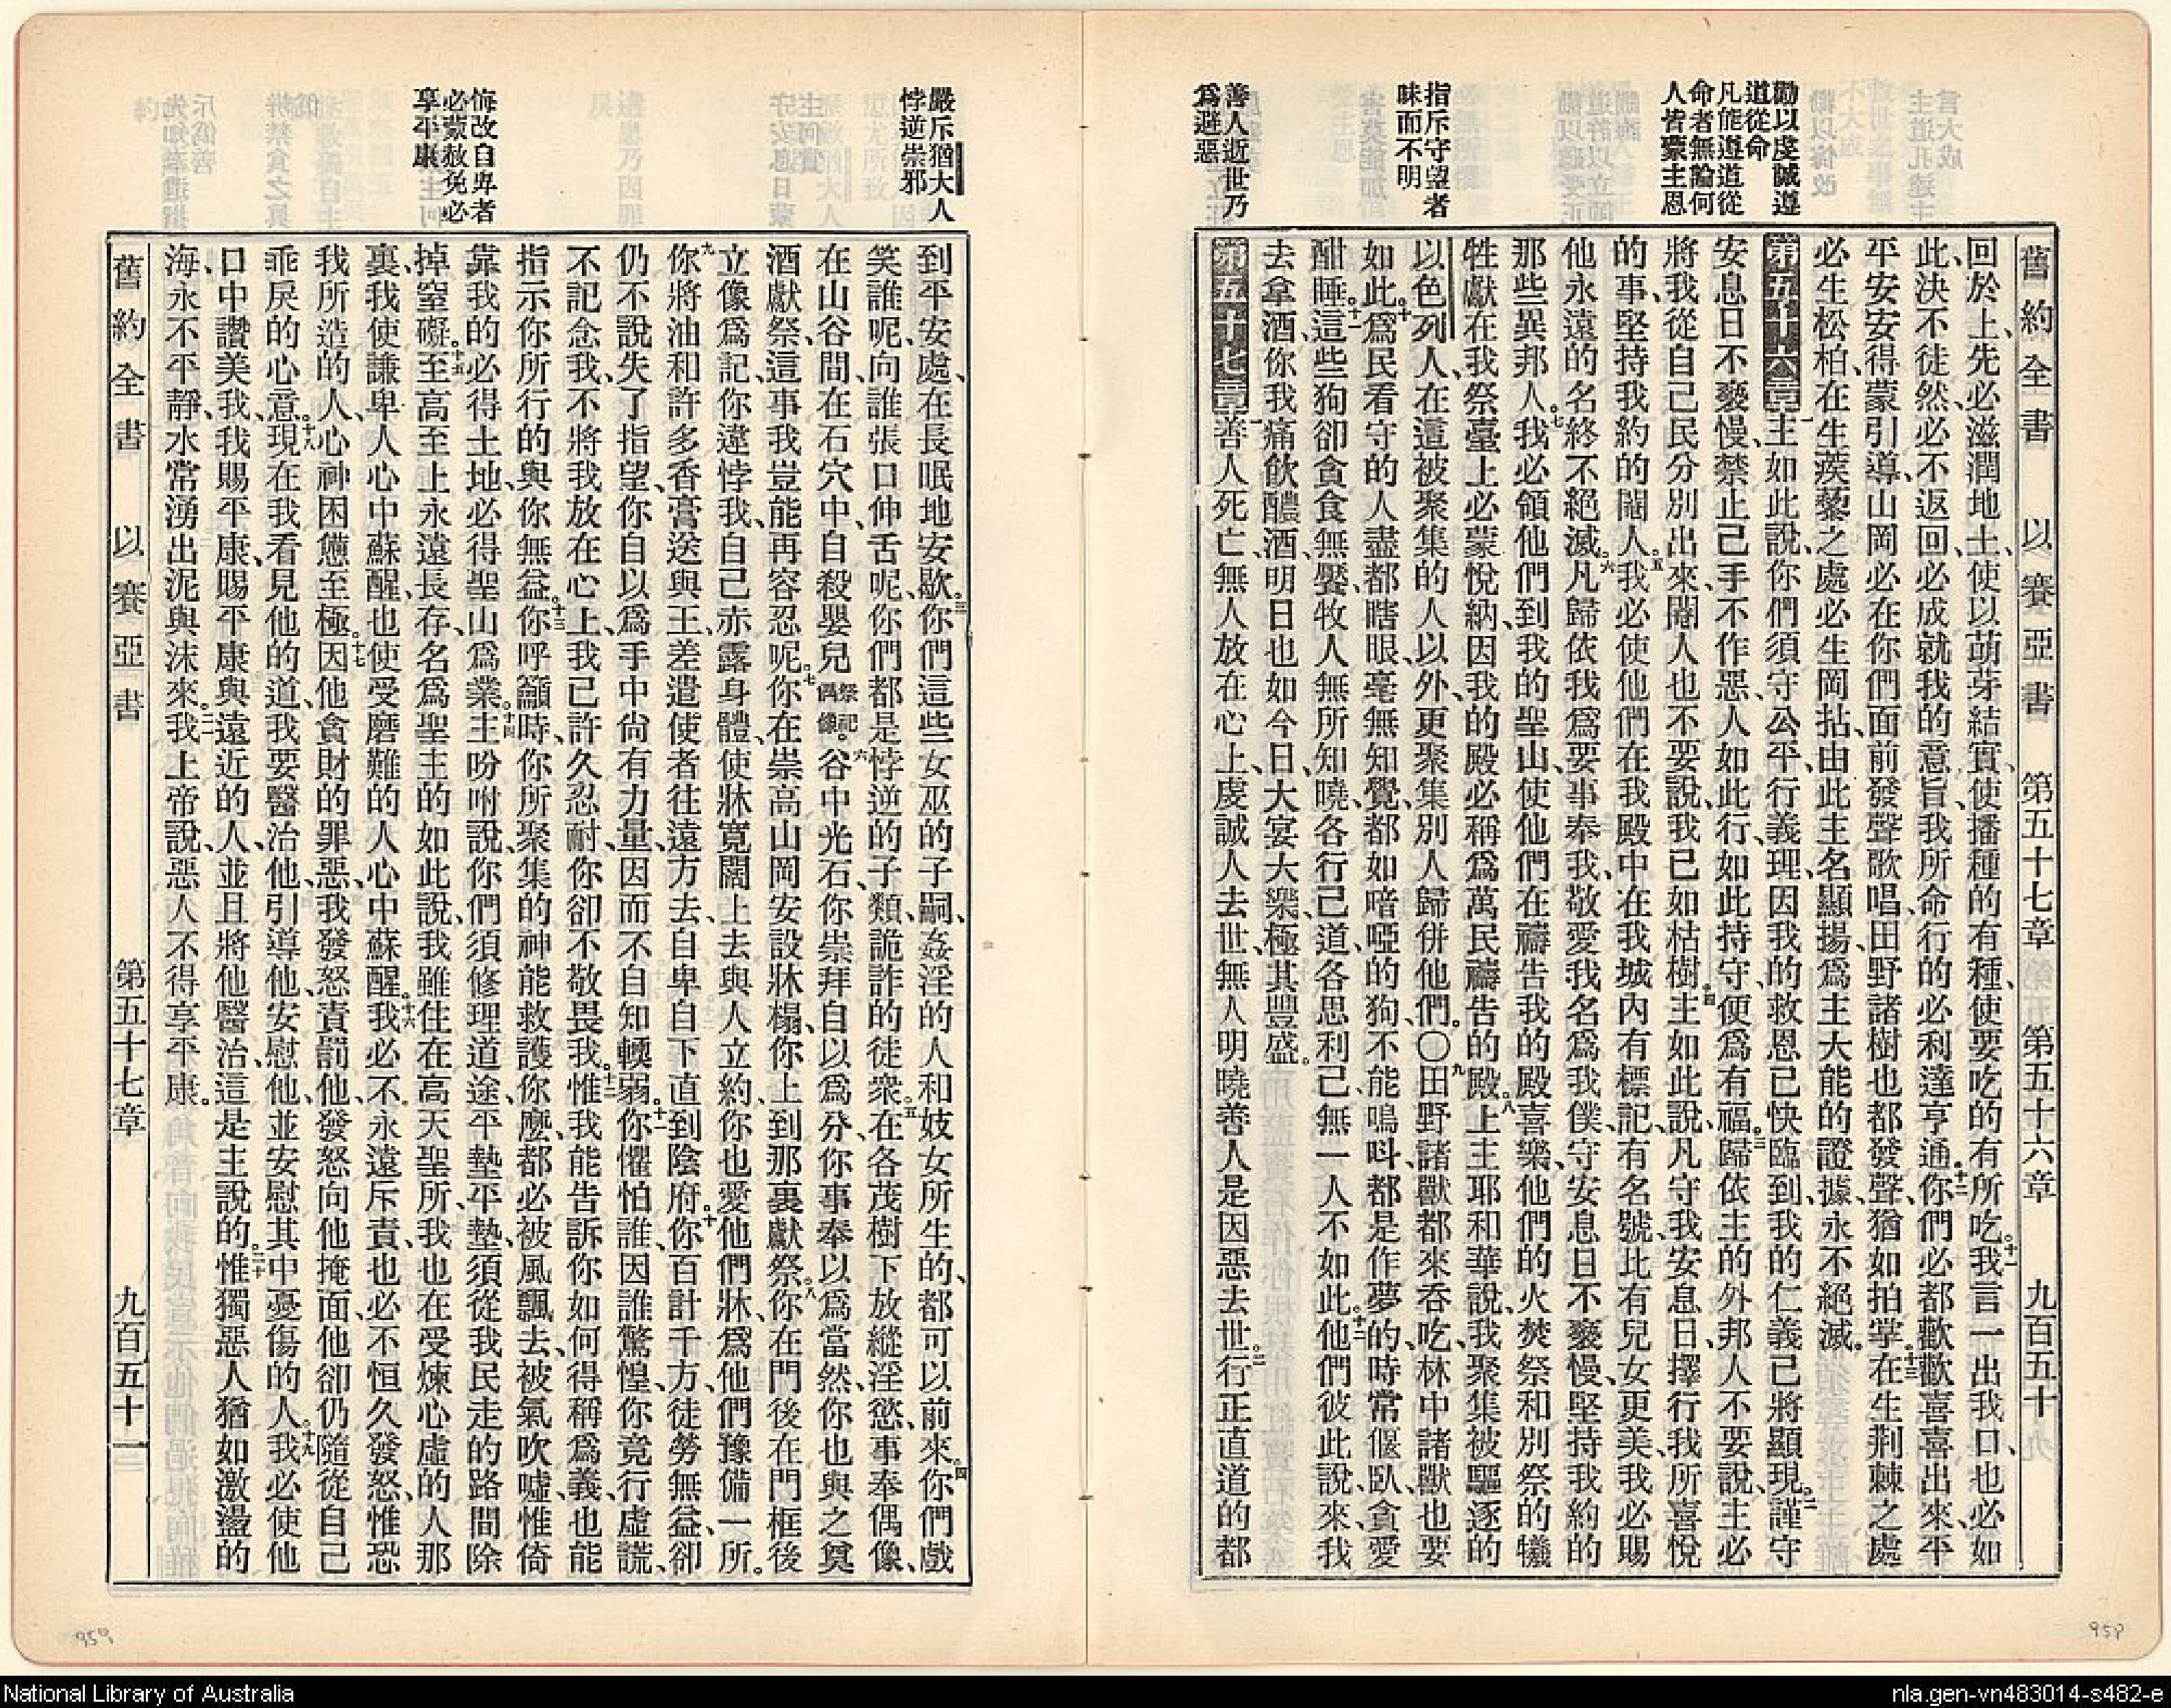 舊約全書 以賽亞書 第五十七章 第五十六章 九百五十
勸以虔誠遵
道從命
凡能遵道從
命者無論何
人皆蒙主恩
指斥守望者
昧而不明
善人逝世乃
爲避惡
回於上、先必滋潤地土、使以萌芽結實、使播種的有種、使要吃的有所吃。十一我言一出我口、也必如
此、決不徒然、必不返回、必成就我的意旨、我所命行的必利達亨通。十二你們必都歡歡喜喜出來、平
平安安得蒙引導、山岡必在你們面前發聲歌唱、田野諸樹也都發聲、猶如拍掌。十三在生荆棘之處
必生松柏、在生蒺藜之處必生岡拈、由此主名顯揚、爲主大能的證據、永不絕滅。
第五十六章 一主如此說、你們須守公平、行義理、因我的救恩已快臨到、我的仁義已將顯現。二謹守
安息日不褻慢、禁止己手不作惡、人如此行、如此持守、便爲有福。三歸依主的外邦人不要說、主必
將我從自己民分別出來、閹人也不要說、我已如枯樹。四主如此說、凡守我安息日、擇行我所喜悅
的事、堅持我約的閹人。五我必使他們在我殿中在我城內有標記、有名號、比有兒女更美、我必賜
他永遠的名、終不絕滅。六凡歸依我、爲要事奉我、敬愛我名、爲我僕、守安息日不褻慢、堅持我約的
那些異邦人。七我必領他們到我的聖山、使他們在禱告我的殿喜樂、他們的火焚祭和別祭的犧
牲、獻在我祭臺上必蒙悅納、因我的殿必稱爲萬民禱告的殿。八上主耶和華說、我聚集被驅逐的
以色列人、在這被聚集的人以外、更聚集別人歸併他們。〇九田野諸獸都來吞吃、林中諸獸也要
如此。十爲民看守的人盡都瞎眼、毫無知覺、都如喑啞的狗、不能鳴呌、都是作夢的、時常偃臥、貪愛
酣睡。十一這些狗卻貪食無饜、牧人無所知曉、各行己道、各思利己、無一人不如此。十二他們彼此說、來、我
去拿酒、你我痛飲醲酒、明日也如今日、大宴大樂、極其豐盛。
第五十七章 一善人死亡、無人放在心上、虔誠人去世、無人明曉善人是因惡去世。二行正直道的都
嚴斥猶大人
悖逆崇邪
悔改自卑者
必蒙赦免必
享平康
到平安處、在長眠地安歇。三你們這些女巫的子嗣、姦淫的人和妓女所生的、都可以前來。四你們戲
笑誰呢、向誰張口伸舌呢、你們都是悖逆的子類、詭詐的徒衆。五在各茂樹下放縱淫慾、事奉偶像、
在山谷間、在石穴中、自殺嬰兒祭祀偶像。六谷中光石、你崇拜自以爲分、你事奉以爲當然、你也與之奠
酒獻祭、這事我豈能再容忍呢。七你在崇高山岡安設牀榻、你上到那裏獻祭。八你在門後在門框後
立像爲記、你違悖我、自己赤露身體、使牀寬闊、上去與人立約、你也愛他們牀、爲他們豫備一所。
九你將油和許多香膏送與王、差遣使者往遠方去、自卑自下直到陰府。十你百計千方、徒勞無益、卻
仍不說失了指望、你自以爲手中尙有力量、因而不自知輭弱。十一你懼怕誰、因誰驚惶、你竟行虛謊、
不記念我、不將我放在心上、我已許久忍耐、你卻不敬畏我。十二惟我能告訴你如何得稱爲義、也能
指示你所行的與你無益。十三你呼籲時、你所聚集的神能救護你麼、都必被風飄去、被氣吹噓、惟倚
靠我的必得土地、必得聖山爲業。十四主吩咐說、你們須修理道途、平墊平墊、須從我民走的路間除
掉窒礙。十五至高至上永遠長存、名爲聖主的如此說、我雖住在高天聖所、我也在受煉心虛的人那
裏、我使謙卑人心中蘇醒、也使受磨難的人心中蘇醒。十六我必不永遠斥責、也必不恒久發怒、惟恐
我所造的人、心神困憊至極。十七因他貪財的罪惡、我發怒責罰他、發怒向他掩面、他卻仍隨從自己
乖戾的心意。十八現在我看見他的道、我要醫治他、引導他、安慰他、並安慰其中憂傷的人。十九我必使他
口中讚美我、我賜平康、賜平康與遠近的人、並且將他醫治、這是主說的。二十惟獨惡人猶如激盪的
海、永不平靜、水常湧出泥與沫來。二一我上帝說、惡人不得享平康。
舊約全書 以賽亞書 第五十七章 九百五十一
959
958
National Library of Australia
nla.gen-vn483014-s482-e